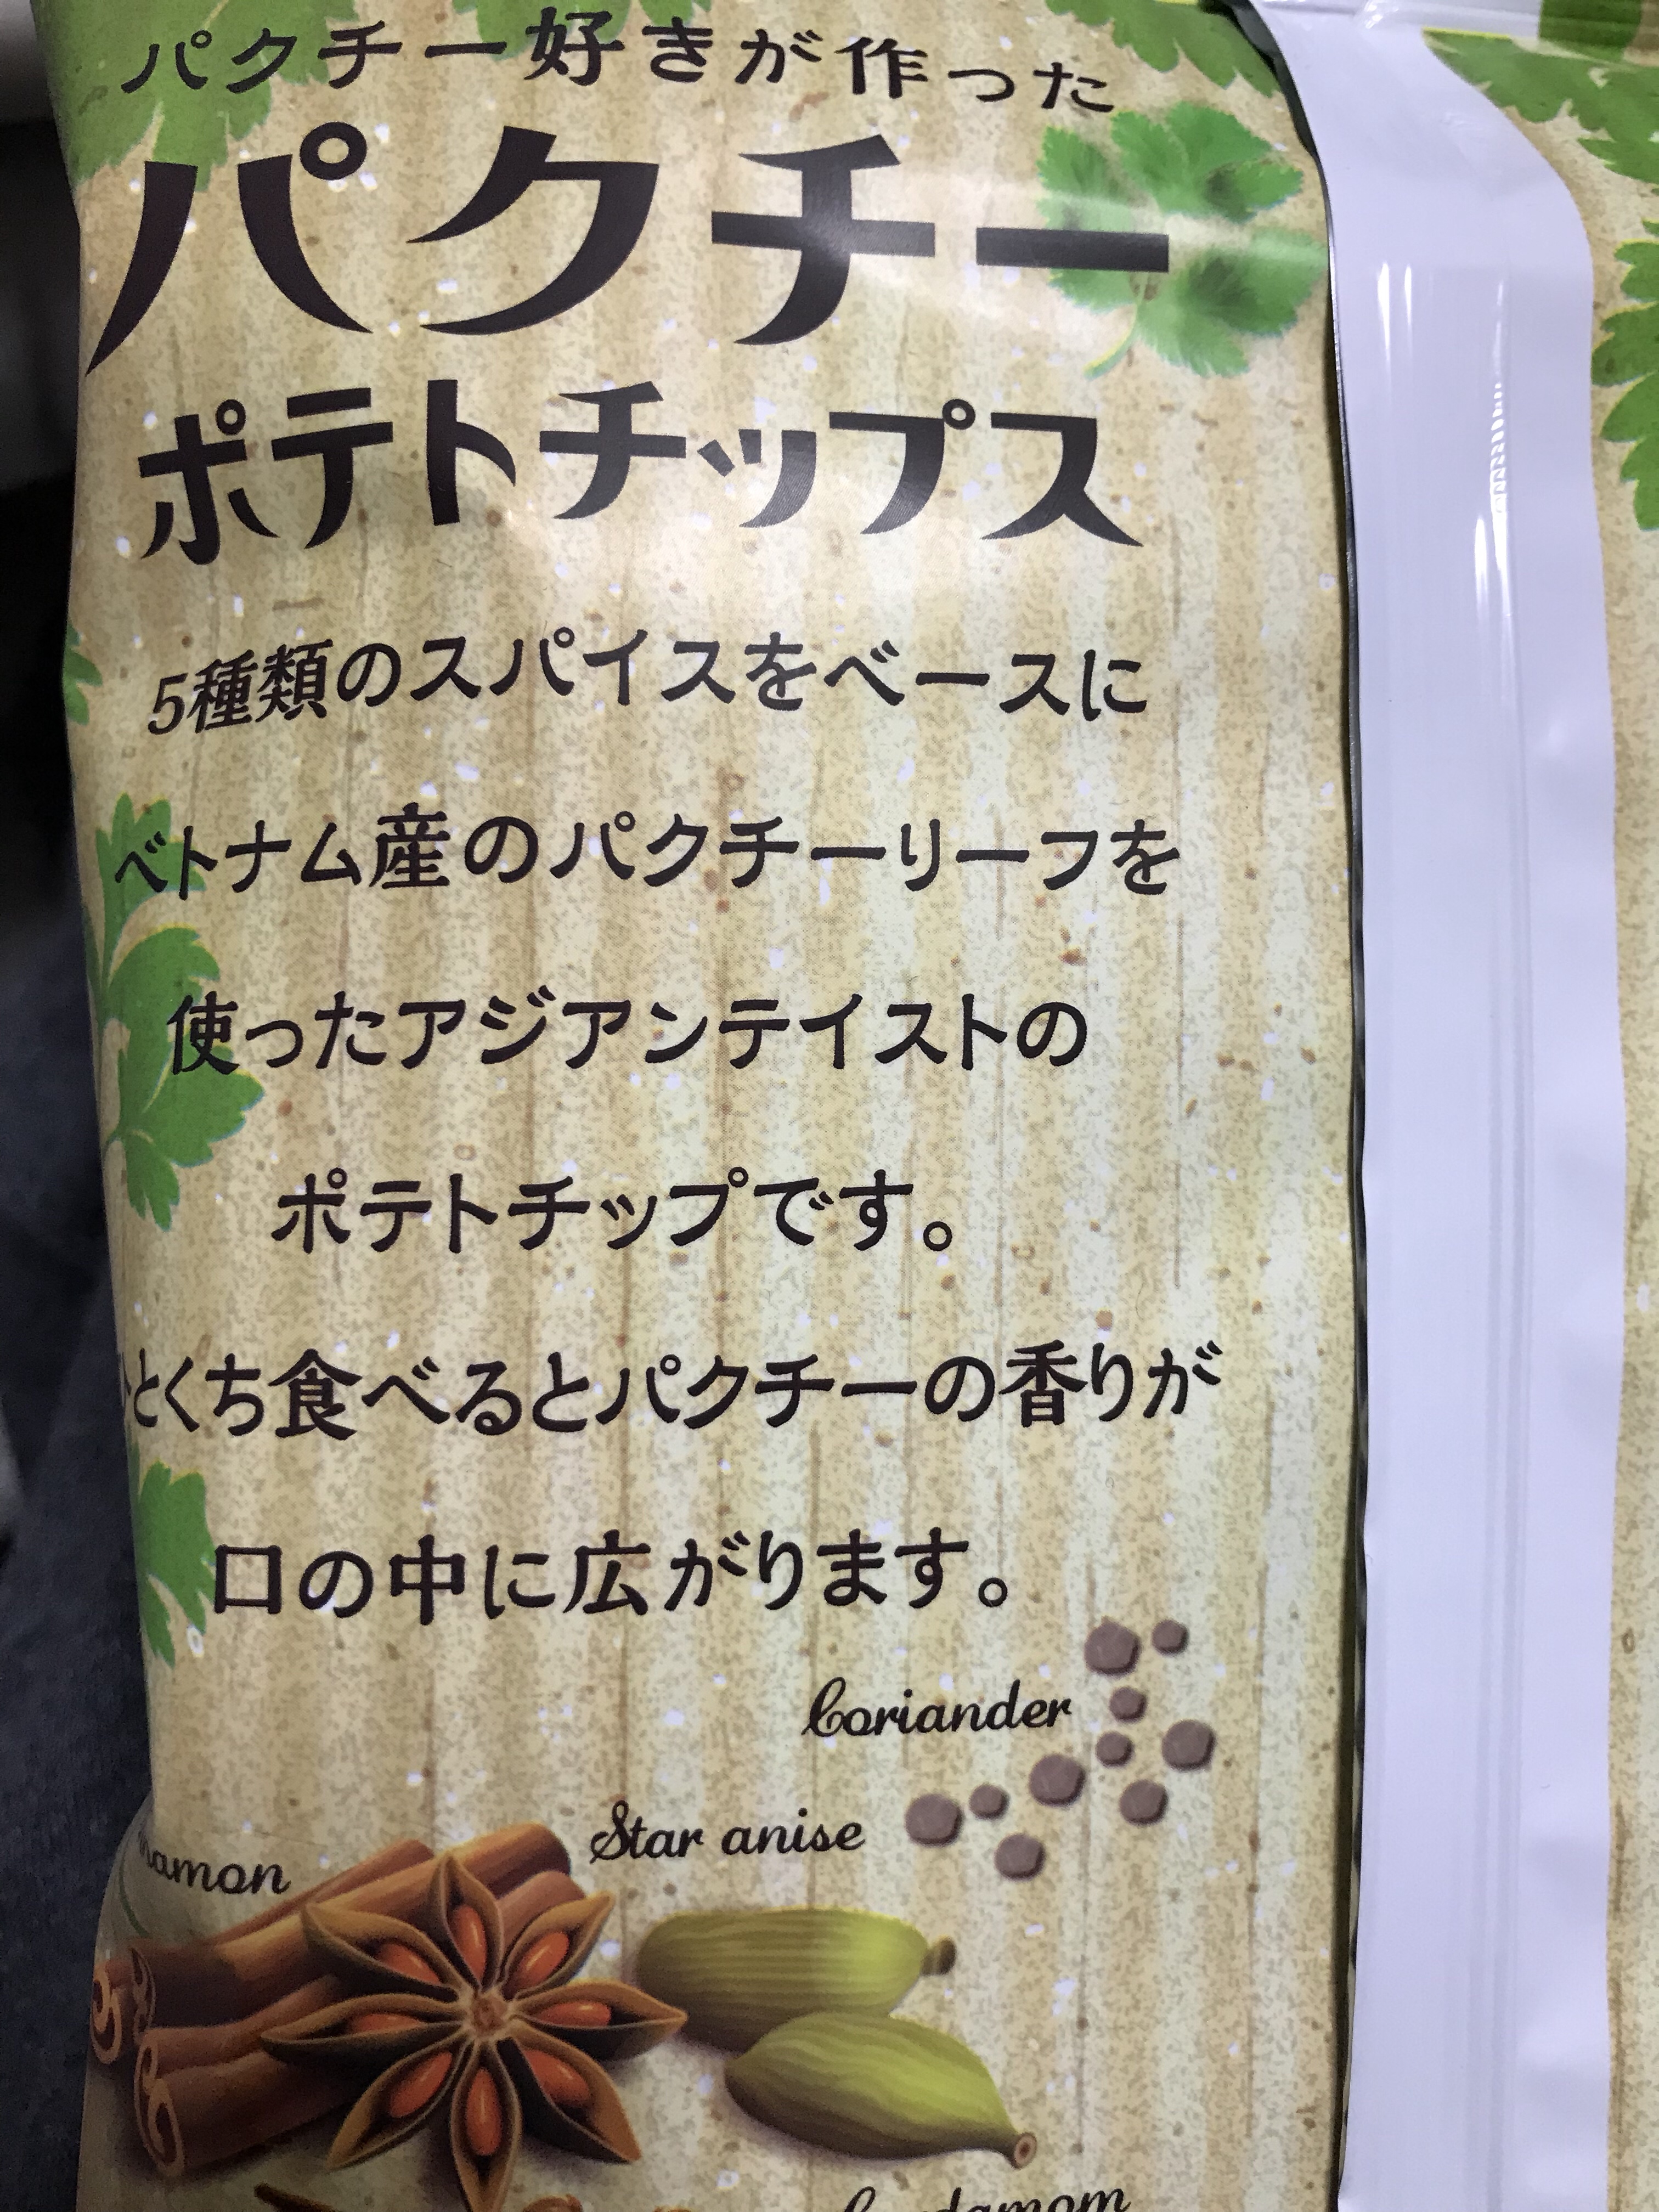 パクチー好きが作った
パクチー
ポテトチップス
5種類のスパイスをベースに
ベトナム産のパクチーリーフを
使ったアジアンテイストの
ポテトチップです。
ひとくち食べるとパクチーの香りが
口の中に広がります。
Coriander
Star anise